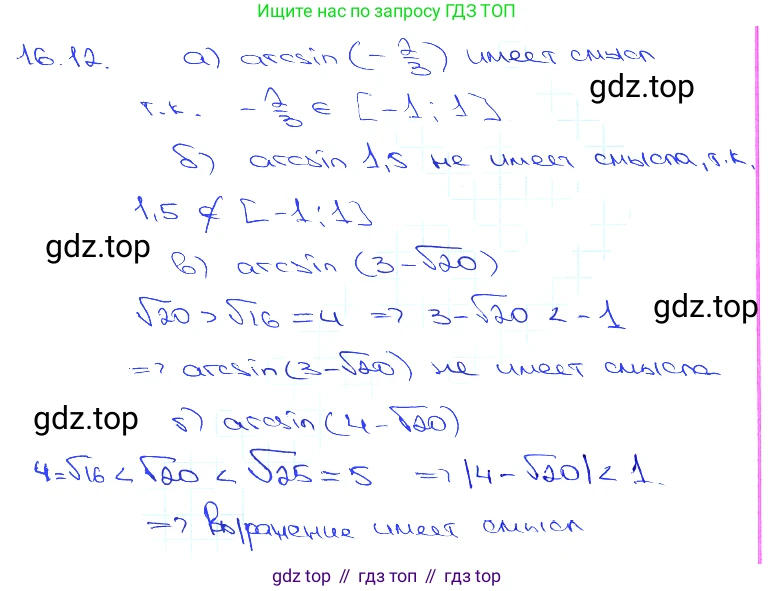 Ищите нас по запросу ГДЗ ТОП
16.12. а) arcsin(-2/3) имеет смысл
gdz.top
т.к. -2/3 ∈ [-1; 1]
б) arcsin 1,5 не имеет смысла, т.к.
1,5 ∉ [-1; 1]
gdz.top
в) arcsin (3-√20)
√20 > √16 = 4 => 3-√20 < -1
gdz.top
=> arcsin(3-√20) не имеет смысла
gdz.top
г) arcsin(4-√20)
4=√16 < √20 < √25 = 5 => |4-√20| < 1.
=> Выражение имеет смысл
gdz top // гдз топ // gdz top